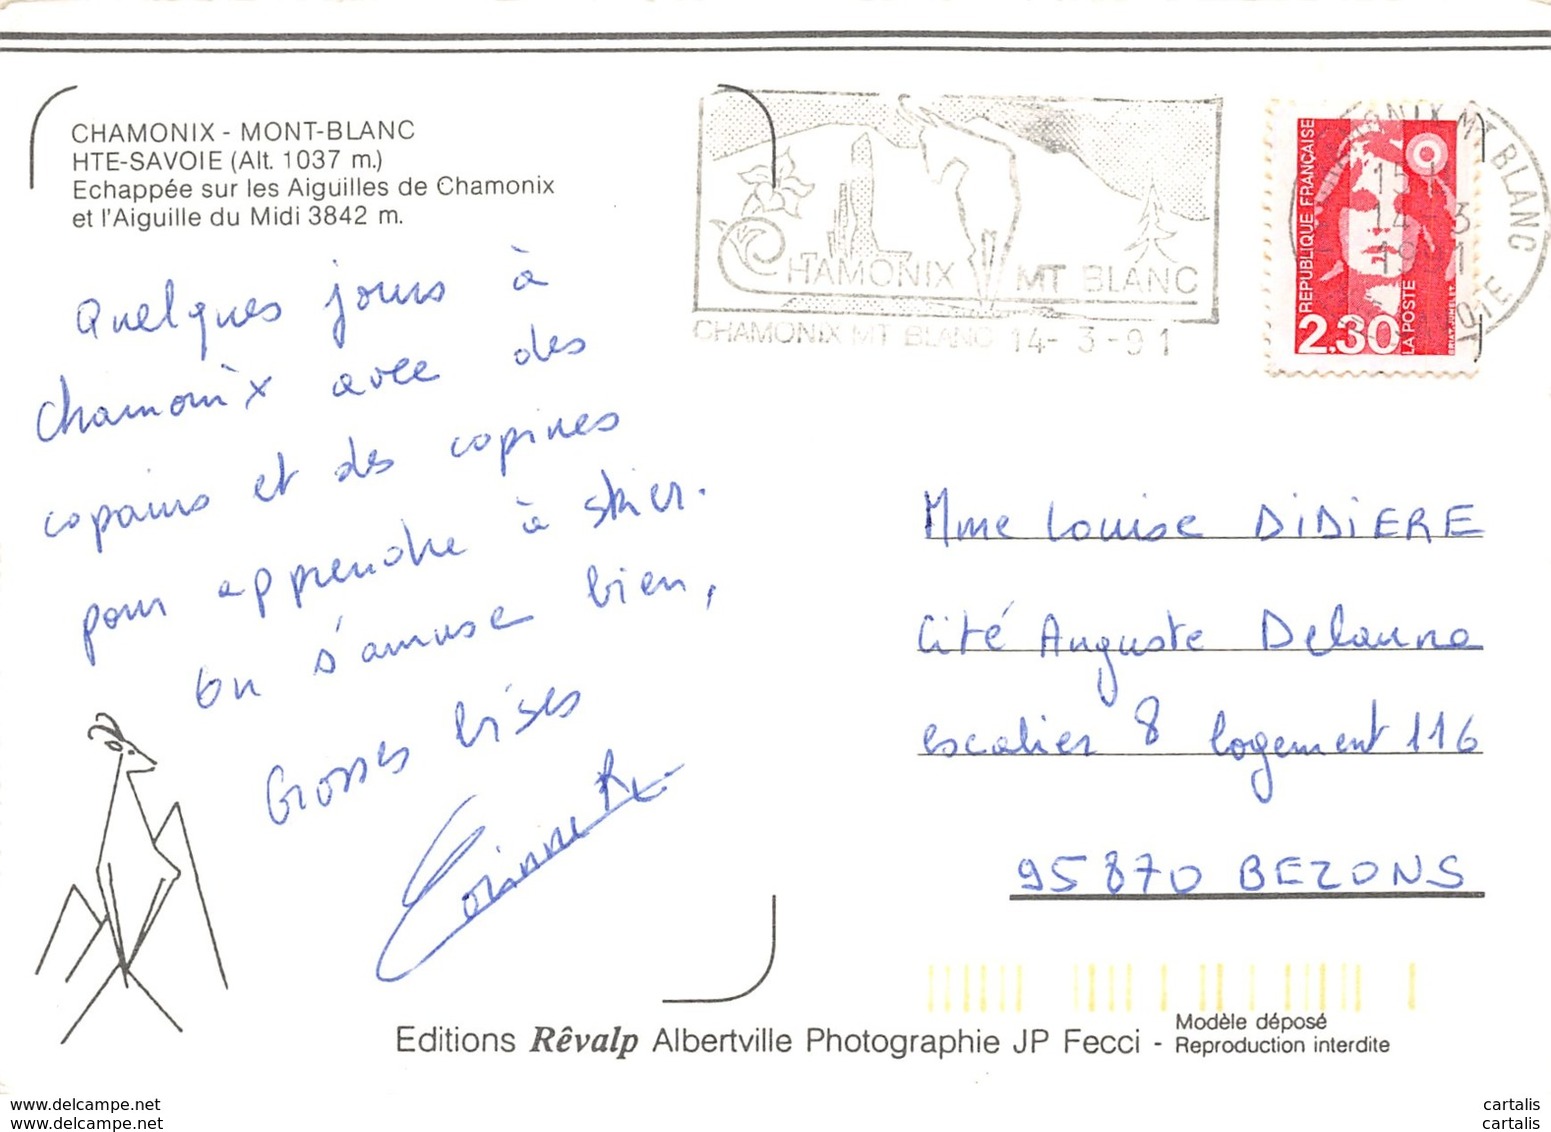 CHAMONIX - MONT-BLANC
HTE-SAVOIE (Alt. 1037 m.)
Echappée sur les Aiguilles de Chamonix
et l'Aiguille du Midi 3842 m.
CHAMONIX MT BLANC
CHAMONIX MT BLANC 14- 3 -91
MONIX MT BLANC
15H
14-3
1991
REPUBLIQUE FRANÇAISE
2,30
LA POSTE
Quelques jours à
Chamonix avec des
copains et des copines
pour apprendre à skier.
On s'amuse bien,
Grosses bises
Corinne R.
Mme Louise DIDIERE
Cité Auguste Delaune
escalier 8 logement 116
95870 BEZONS
Editions Rêvalp Albertville Photographie JP Fecci - Modèle déposé
Reproduction interdite
www.delcampe.net
www.delcampe.net
cartalis
cartalis